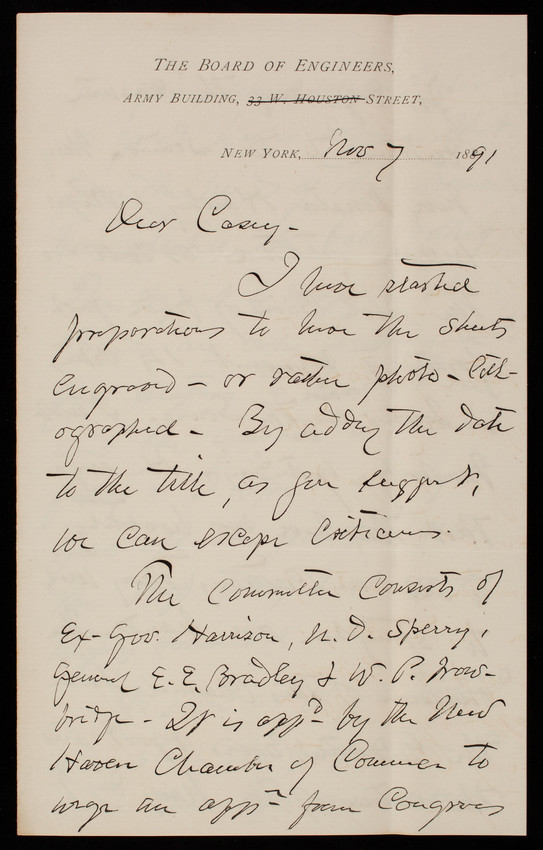 THE BOARD OF ENGINEERS,
ARMY BUILDING, 33 W. HOUSTON STREET,
NEW YORK, Nov 7 1891
Dear Casey -
I have started
preparations to have the sheets
engraved - or rather photo-lith-
ographed - By adding the date
to the title, as you suggest,
we can escape criticisms.
The Committee consists of
Ex-Gov. Harrison, N. D. Sperry,
General E. E. Bradley & W. P. Trow-
bridge - It is appd by the New
Haven Chamber of Commerce to
urge an appn from Congress